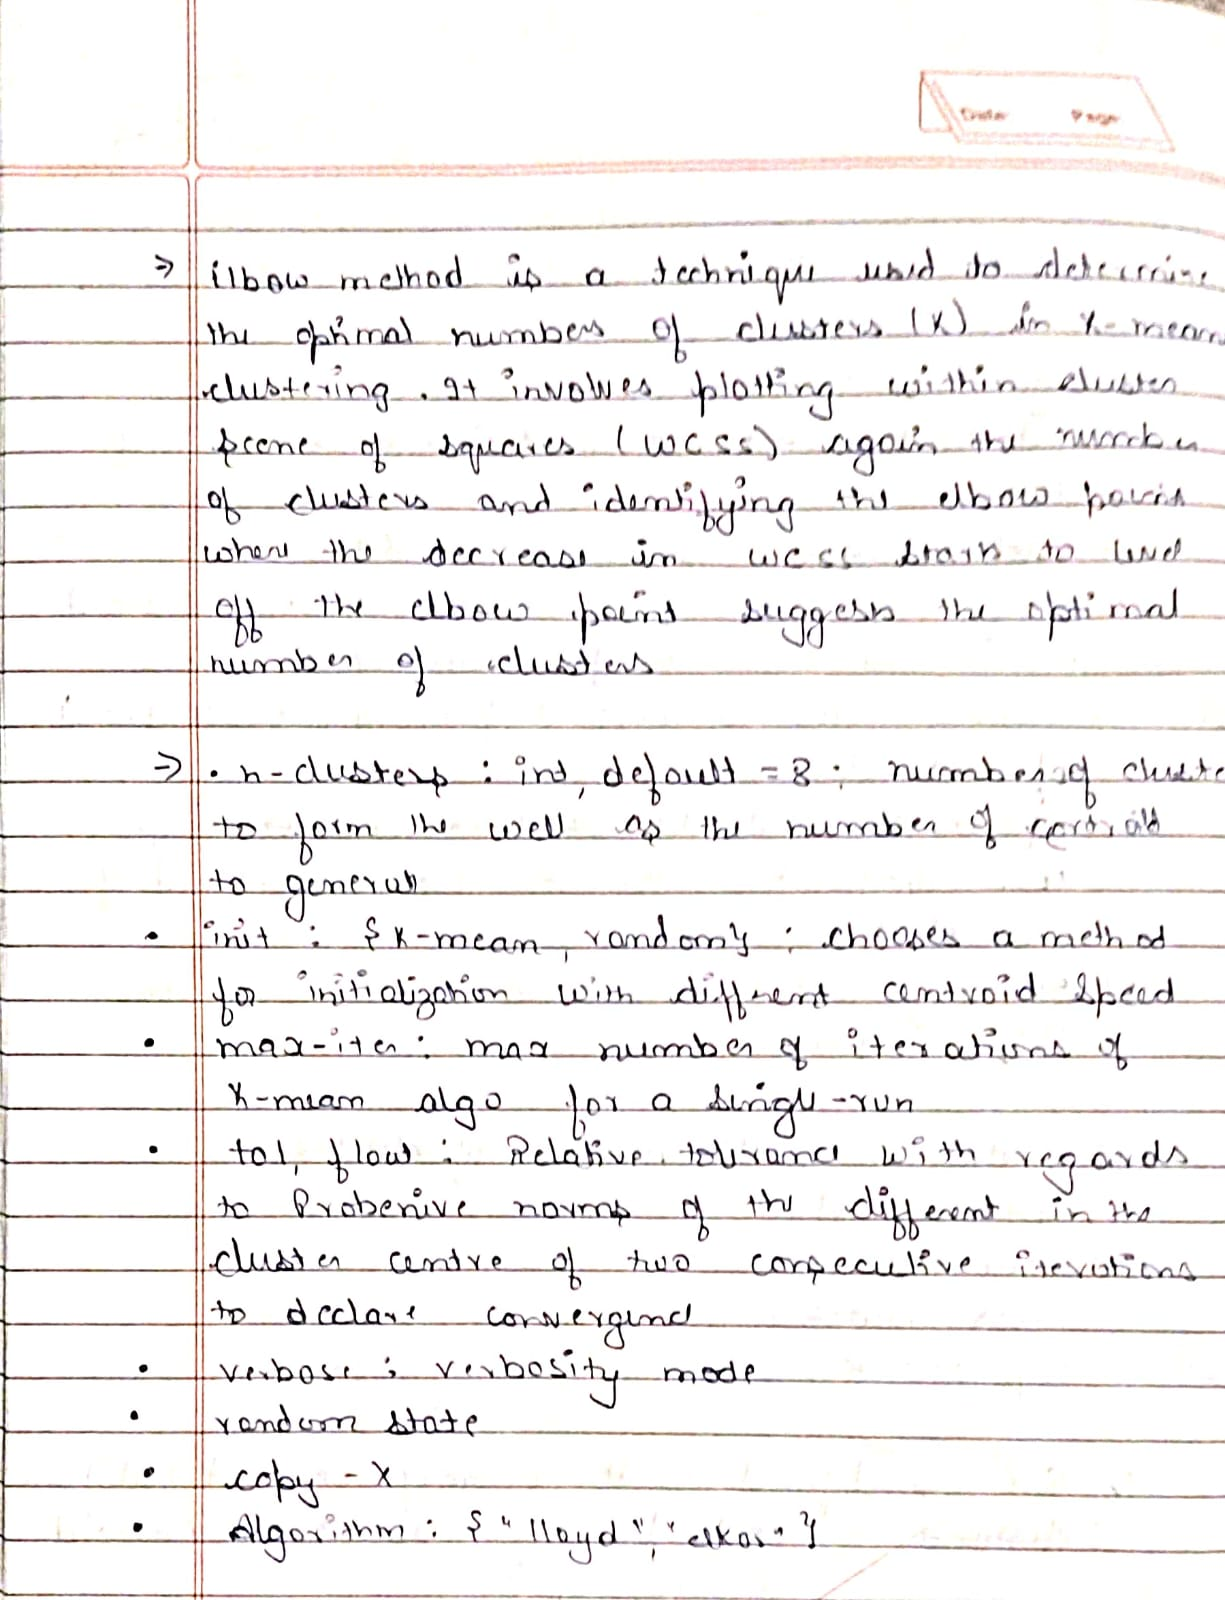 Date Page
→ ilbow method is a technique used to determine
the optimal numbers of clusters (K) in K-mean
clustering. It involves plotting within cluster
of squares (WCSS) again the number
of clusters and identifying the elbow point
where the decrease in WCSS starts to level
off the elbow point suggests the optimal
number of clusters
→ • n-clusters : int, default = 8 : number of cluste
to form the well as the number of
to general
• init : {K-mean, random} : chooses a method
for initialization with different centroid speed
• max-iter : max number of iterations of
K-mean algo for a single-run
• tol, float : Relative tolerance with regards
to Probenive norms of the different in the
cluster centre of two consecutive iterations
to declare
• verbose : verbosity mode
• random state
• copy - X
• Algorithm : {"lloyd", "elkan"}